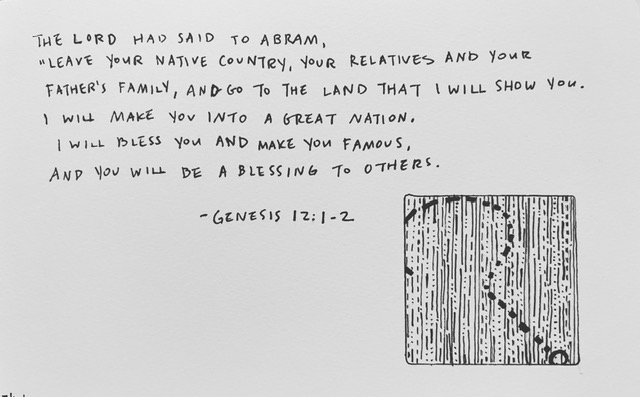 THE LORD HAD SAID TO ABRAM,
"LEAVE YOUR NATIVE COUNTRY, YOUR RELATIVES AND YOUR
FATHER'S FAMILY, AND GO TO THE LAND THAT I WILL SHOW YOU.
I WILL MAKE YOU INTO A GREAT NATION.
I WILL BLESS YOU AND MAKE YOU FAMOUS,
AND YOU WILL BE A BLESSING TO OTHERS.
-GENESIS 12:1-2